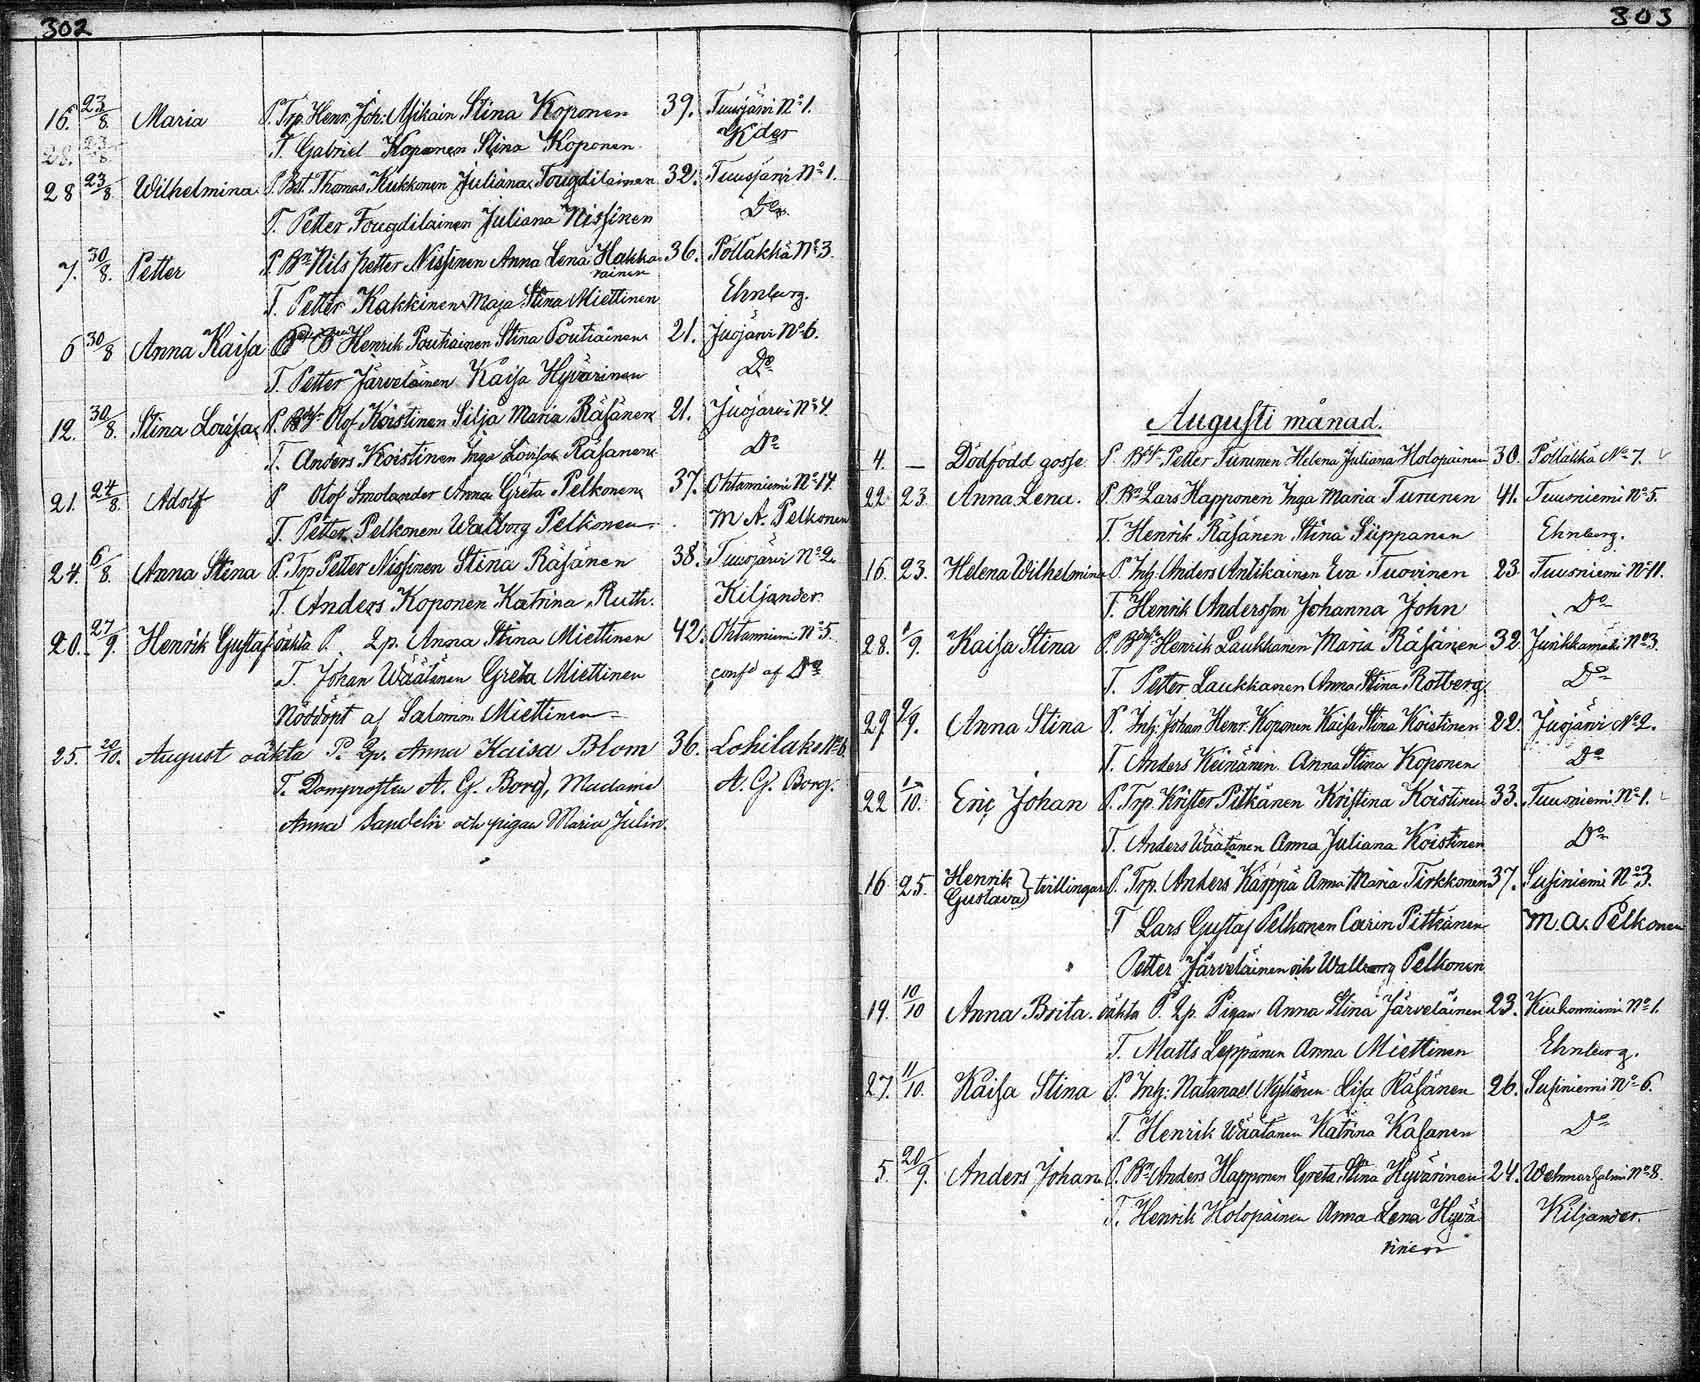 302
16. 23/8. Maria P. Trp. Henr. Joh: Asikain Stina Koponen 39. Tuusjärvi No 1.
28. 23/8. T. Gabriel Koponen Stina Koponen. Kder
28 23/8. Wilhelmina P. Bst. Thomas Kukkonen Juliana Fougdilainen 32. Tuusjärvi No 1.
T. Petter Fougdilainen Juliana Nissinen Do
7. 30/8. Petter P. Bn Nils Petter Nissinen Anna Lena Hakka 36. Pölläkkä No 3.
rainen
T. Petter Kakkinen Maja Stina Miettinen Ehnberg.
6 30/8 Anna Kaisa Henrik Poutiainen Stina Poutiainen 21. Juojärvi No 6.
T. Petter Järveläinen Kaisa Hyvärinen Do
12. 30/8. Stina Lovisa P. Olof Koistinen Silja Maria Räsänen 21. Juojärvi No 4.
T. Anders Koistinen Inga Lovisa Räsänen Do
21. 24/8. Adolf P Olof Smolander Anna Greta Pelkonen 37. Ohtanniemi No 14
T. Petter Pelkonen Walborg Pelkonen. M A. Pelkonen
24. 6/8. Anna Stina P. Trp Petter Nissinen Stina Räsänen 38. Tuusjärvi No 2.
T. Anders Koponen Katrina Ruth. Kiljander.
20. 27/9. Henrik Gustaf oäkta P. Lp. Anna Stina Miettinen 42. Ohtanniemi No 5.
T. Johan Wäätänen Greta Miettinen conf. af Do
Nöddöpt af Salomon Miettinen
25. 20/10. August oäkta P. Lp. Anna Kaisa Blom 36. Lohilaks No 6
T. Domprosten A. G. Borg, Madame A. G. Borg.
Anna Sandelin och pigan Maria Julin.
303
Augusti månad.
4. — Dödfödd gosse P. Petter Turunen Helena Juliana Holopainen 30. Pölläkkä No 7.
22 23. Anna Lena. P. Bn Lars Happonen Inga Maria Turunen 41. Tuusniemi No 5.
T. Henrik Räsänen Stina Siippanen Ehnberg.
16. 23. Helena Wilhelmina P. Inh: Anders Antikainen Eva Tuovinen 23. Tuusniemi No 11.
T. Henrik Andersson Johanna John Do
28. 1/9. Kaisa Stina P. Henrik Laukkanen Maria Räsänen 32. Junkkamäki No 3.
T. Petter Laukkanen Anna Stina Rotberg. Do
29. 9. Anna Stina P. Inh: Johan Henr. Koponen Kaisa Stina Koistinen 22. Juojärvi No 2.
T. Anders Keinänen Anna Stina Koponen Do
22 10. Eric Johan P. Trp. Krister Pitkänen Kristina Koistinen 33. Tuusniemi No 1.
T. Anders Wäätänen Anna Juliana Koistinen Do
16 25. Henrik Gustava } tvillingar P. Trp. Anders Karppa Anna Maria Tirkkonen 37. Susiniemi No 3.
T Lars Gustaf Pelkonen Carin Pitkänen M. A. Pelkonen
Petter Järveläinen och Walborg Pelkonen
19. 10/10 Anna Brita. oäkta P. Lp. Pigan Anna Stina Järveläinen 23. Kiukonniemi No 1.
T. Matts Leppänen Anna Miettinen Ehnberg.
27. 11/10. Kaisa Stina P. Inh: Natanael Nykänen Lisa Räsänen 26. Susiniemi No 6.
T. Henrik Wäätänen Katrina Kasanen Do
5. 20/9. Anders Johan P. Bn Anders Happonen Greta Stina Hyvärinen 24. Wehmarsalmi No 8.
T. Henrik Holopainen Anna Lena Hyvä Kiljander.
rinen